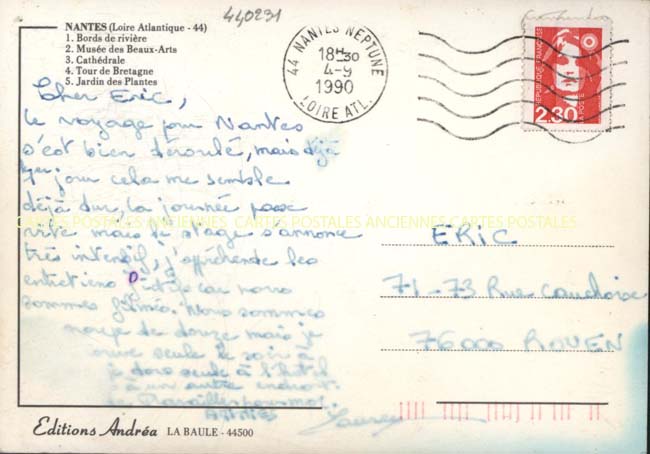 440231
NANTES (Loire Atlantique - 44)
1. Bords de rivière
2. Musée des Beaux-Arts
3. Cathédrale
4. Tour de Bretagne
5. Jardin des Plantes
44 NANTES NEPTUNE
18H30
4-9
1990
LOIRE ATL.
RÉPUBLIQUE FRANÇAISE
LA POSTE
2,30
Cher Eric,
le voyage pour Nantes
s'est bien déroulé, mais déjà
1er jour cela me semble
déjà dur, la journée passe
vite mais le stage s'annonce
très intensif, j'appréhende les
entretiens car nous
sommes filmés. Nous sommes
de douze mais je
seule le soir à
je dors seule à l'hotel
à un autre endroit
Travailles pour moi.
CARTES POSTALES ANCIENNES CARTES POSTALES ANCIENNES CARTES POSTALES
ERIC
71-73 Rue
76000 ROUEN
Editions Andréa LA BAULE - 44500